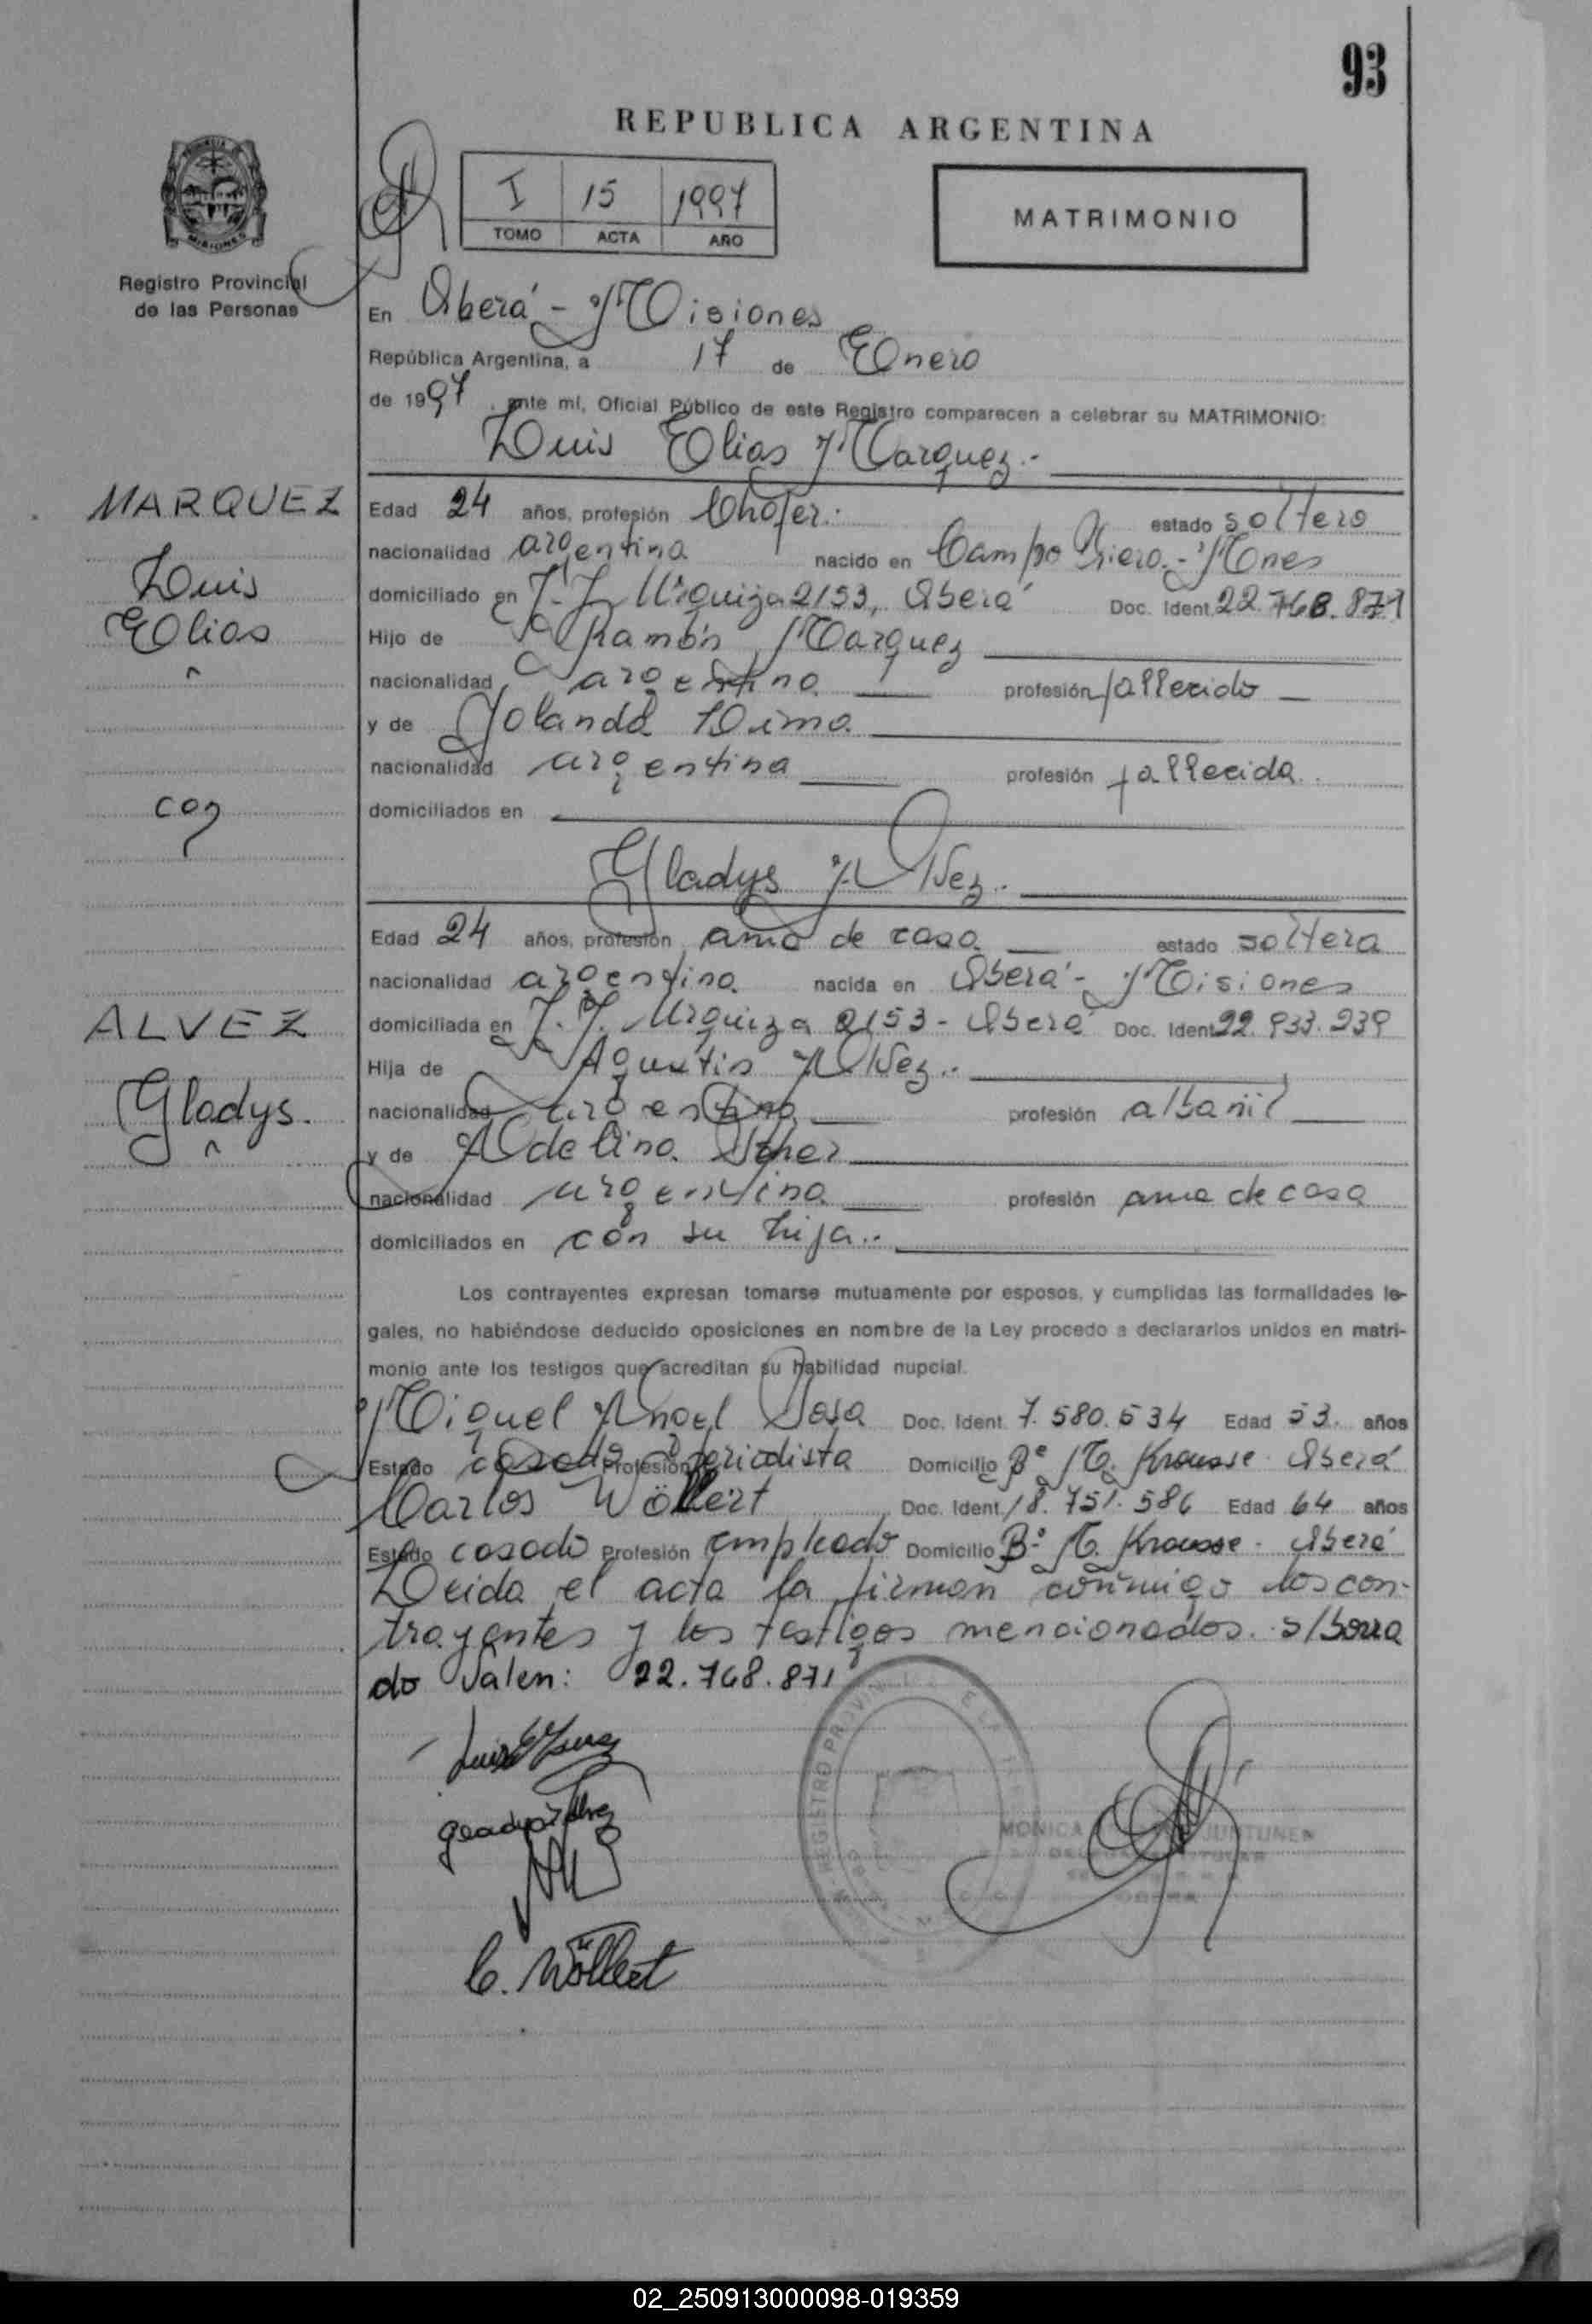 93
REPUBLICA ARGENTINA
I 15 1997
TOMO ACTA AÑO
MATRIMONIO
MISIONES
Registro Provincial
de las Personas
En Oberá - Misiones
República Argentina, a 17 de Enero
de 1997, ante mí, Oficial Público de este Registro comparecen a celebrar su MATRIMONIO:
Luis Elias Marquez.-
MARQUEZ
Luis
Elias
con
ALVEZ
Gladys.
Edad 24 años, profesión Chofer.- estado soltero
nacionalidad argentina nacido en Campo Viera.- Mnes
domiciliado en J.J. Urquiza 2153, Oberá Doc. Ident. 22.768.871
Hijo de Ramón Marquez
nacionalidad argentino profesión fallecido
y de Yolanda Lima
nacionalidad argentina profesión fallecida
domiciliados en
Gladys Alvez.-
Edad 24 años, profesión ama de casa estado soltera
nacionalidad argentina nacida en Oberá - Misiones
domiciliada en J.J. Urquiza 2153 - Oberá Doc. Ident. 22.933.239
Hija de Agustin Alvez.-
nacionalidad argentino profesión albañil
y de Adelina
nacionalidad argentina profesión ama de casa
domiciliados en con su hija.-
Los contrayentes expresan tomarse mutuamente por esposos, y cumplidas las formalidades le-
gales, no habiéndose deducido oposiciones en nombre de la Ley procedo a declararlos unidos en matri-
monio ante los testigos que acreditan su habilidad nupcial.
Miguel Angel Sosa Doc. Ident. 7.580.534 Edad 53. años
Estado casado Profesión periodista Domicilio Bº M. Krausse - Oberá
Carlos Wöllert Doc. Ident. 18.751.586 Edad 64 años
Estado casado Profesión empleado Domicilio Bº M. Krausse - Oberá
Leida el acta la firman conmigo los con-
trayentes y los testigos mencionados. s/borra
do Valen: 22.768.871
Gladys Alvez
C. Wöllert
REGISTRO PROVINCIAL DE LA
MONICA JUNTUNEN
TITULAR
OBERA
02_250913000098-019359